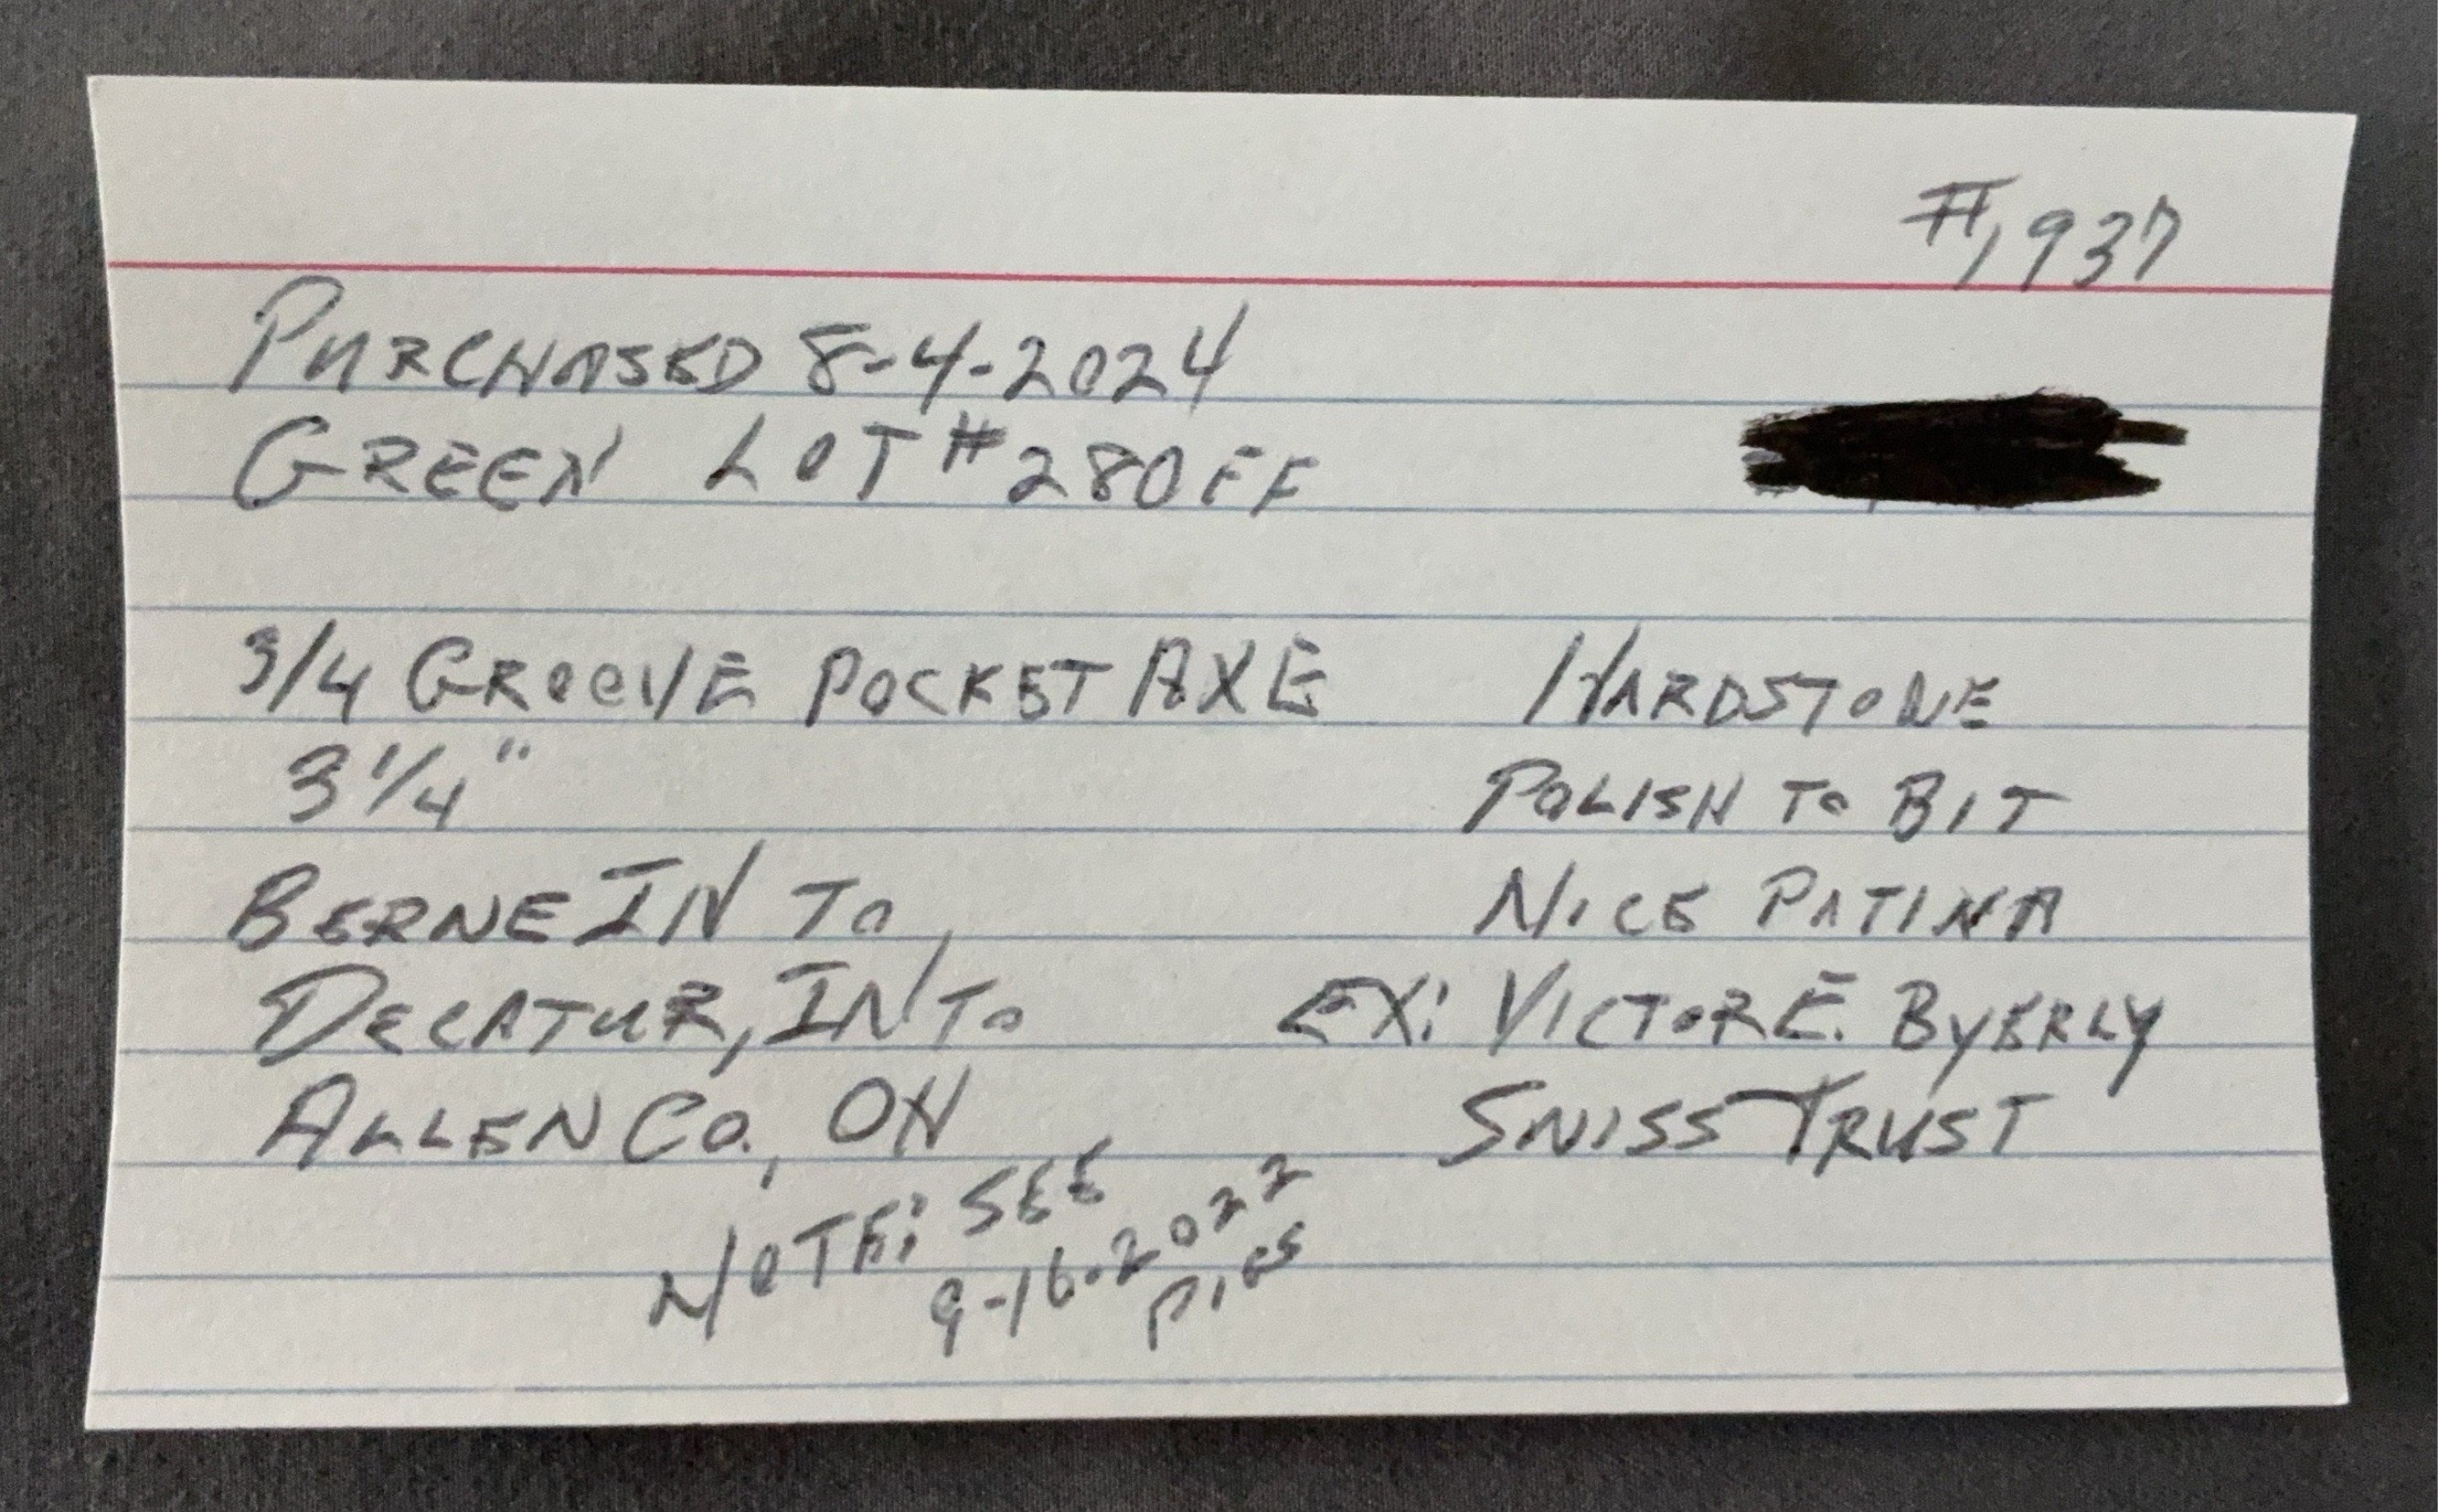 #1937
PURCHASED 8-4-2024
GREEN LOT #280FF
3/4 GROOVE POCKET AXE
3 1/4"
BERNE IN TO
DECATUR, IN TO
ALLEN CO., OH
HARDSTONE
POLISH TO BIT
NICE PATINA
EX: VICTOR E. BYERLY
SWISS TRUST
NOTE: SEE
9-16-2022
PICS